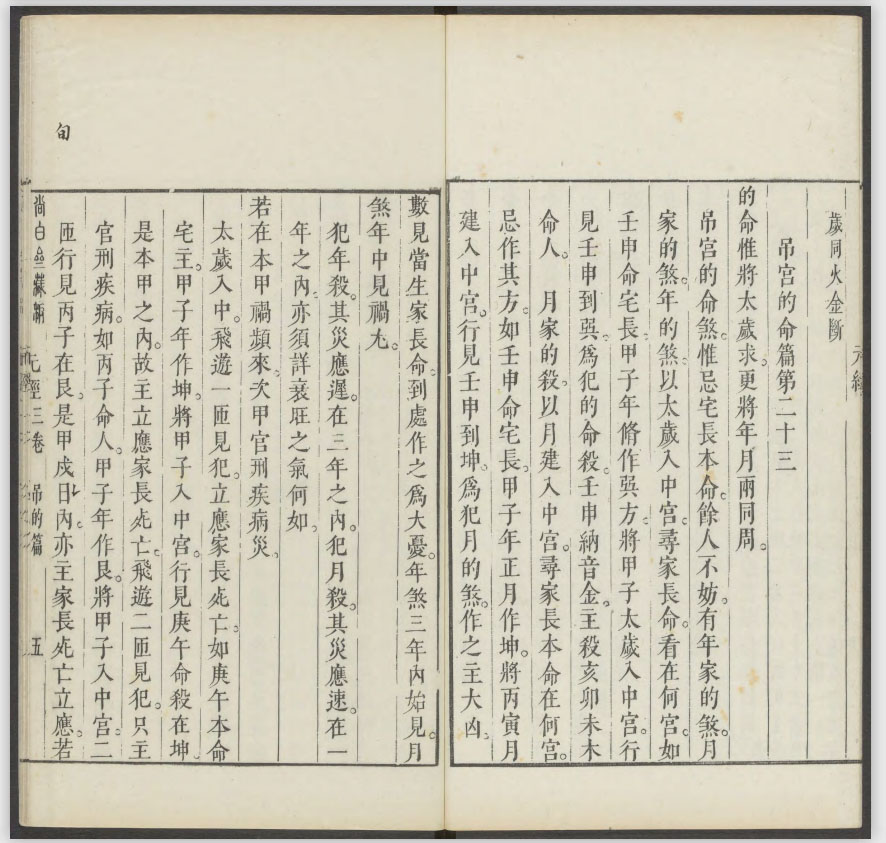 歲同火金斷
吊宮的命篇第二十三
的命惟將太歲求。更將年月兩同周。
吊宮的命煞。惟忌宅長本命。餘人不妨。有年家的煞。月
家的煞。年的煞。以太歲入中宮。尋家長命。看在何宮。如
壬申命宅長。甲子年脩作巽方。將甲子太歲入中宮。行
見壬申到巽。爲犯的命殺。壬申納音金。主殺亥卯未木
命人。 月家的殺。以月建入中宮。尋家長本命在何宮。
忌作其方。如壬申命宅長。甲子年正月作坤。將丙寅月
建入中宮。行見壬申到坤。爲犯月的煞。作之主大凶。
元經
數見當生家長命。到處作之爲大憂。年煞三年內始見。月
煞年中見禍尤。
犯年殺。其災應遲。在三年之內。犯月殺。其災應速。在一
年之內。亦須詳衰旺之氣何如。
若在本甲禍頻來。次甲官刑疾病災。
太歲入中。飛遊一匝見犯。立應家長死亡。如庚午本命
宅主。甲子年作坤。將甲子入中宮。行見庚午命殺在坤。
是本甲之內。故主立應家長死亡。飛遊二匝見犯。只主
官刑疾病。如丙子命人。甲子年作艮。將甲子入中宮。二
匝行見丙子在艮。是甲戍日內。亦主家長死亡立應。若
元經三卷 吊的篇 五
旬